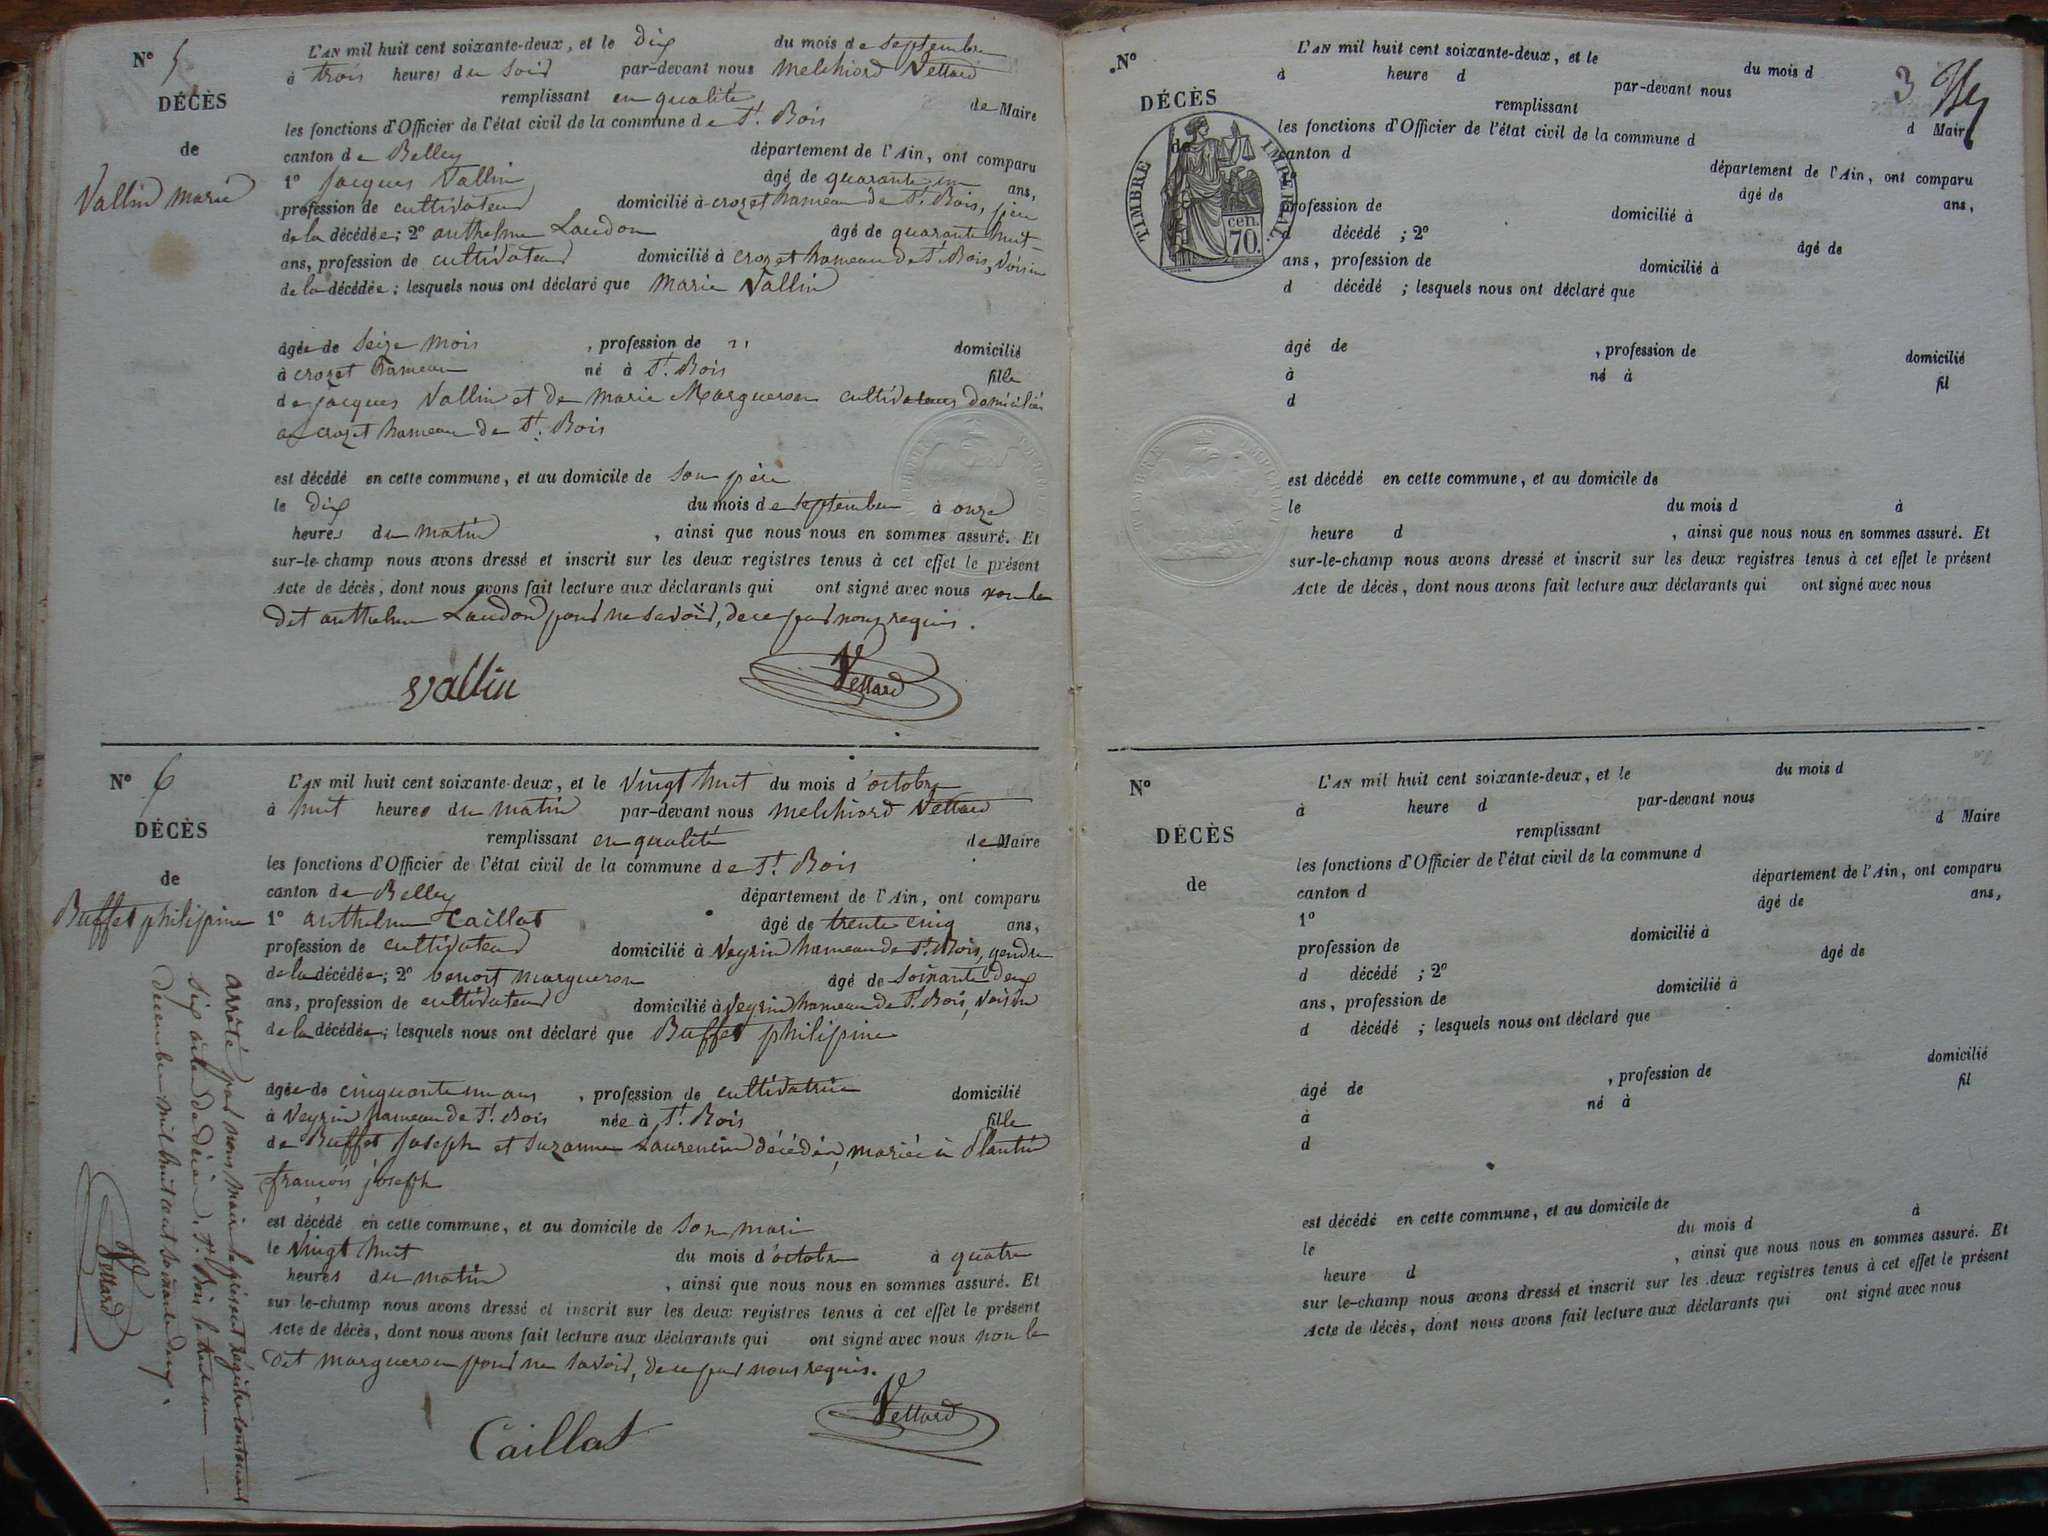 N° 5
DÉCÈS
de
Vallin marie
L'AN mil huit cent soixante-deux, et le dix du mois de septembre
à trois heures du soir par-devant nous melchiord Vettard
remplissant en qualité de Maire
les fonctions d'Officier de l'état civil de la commune de St. Bois
canton de Belley département de l'Ain, ont comparu
1° Jacques Vallin âgé de quarante un ans,
profession de cultivateur domicilié à crozet hameau de St. Bois, père
de la décédée; 2° anthelme Landon âgé de quarante huit
ans, profession de cultivateur domicilié à crozet hameau de St. Bois, voisin
de la décédée; lesquels nous ont déclaré que Marie Vallin
âgée de seize mois , profession de " domicilié
à crozet hameau né à St. Bois fille
de jacques Vallin et de marie Marguerou cultivateurs domiciliés
au crozet hameau de St. Bois
est décédé en cette commune, et au domicile de son père
le dix du mois de septembre à onze
heures du matin , ainsi que nous nous en sommes assuré. Et
sur-le-champ nous avons dressé et inscrit sur les deux registres tenus à cet effet le présent
Acte de décès, dont nous avons fait lecture aux déclarants qui ont signé avec nous non le
dit anthelme Landon pour ne savoir, de ce par nous requis.
Vallin Vettard
N° 6
DÉCÈS
de
Buffet philippine
L'AN mil huit cent soixante-deux, et le vingt huit du mois d'octobre
à huit heures du matin par-devant nous melchiord Vettard
remplissant en qualité de Maire
les fonctions d'Officier de l'état civil de la commune de St. Bois
canton de Belley département de l'Ain, ont comparu
1° anthelme Caillat âgé de trente cinq ans,
profession de cultivateur domicilié à Veyrin hameau de St. Bois, gendre
de la décédée; 2° benoit marguerou âgé de soixante deux
ans, profession de cultivateur domicilié à Veyrin hameau de St. Bois, voisin
de la décédée; lesquels nous ont déclaré que Buffet philippine
âgée de cinquante un ans , profession de cultivatrice domicilié
à Veyrin hameau de St. Bois née à St. Bois fille
de Buffet Joseph et Suzanne Laurencin décédés, mariée à Plantin
françois joseph
est décédé en cette commune, et au domicile de son mari
le vingt huit du mois d'octobre à quatre
heures du matin , ainsi que nous nous en sommes assuré. Et
sur-le-champ nous avons dressé et inscrit sur les deux registres tenus à cet effet le présent
Acte de décès, dont nous avons fait lecture aux déclarants qui ont signé avec nous non le
dit marguerou pour ne savoir, de ce par nous requis.
Caillat Vettard
arrêté par nous maire le présent registre contenant
six actes de décès. St. Bois le trente un
décembre mil huit cent soixante deux.
Vettard
3
N°
DÉCÈS
de
TIMBRE IMPÉRIAL
cen. 70.
L'AN mil huit cent soixante-deux, et le du mois d
à heure d par-devant nous
remplissant d Maire
les fonctions d'Officier de l'état civil de la commune d
canton d département de l'Ain, ont comparu
âgé de ans,
profession de domicilié à
d décédé ; 2° âgé de
ans, profession de domicilié à
d décédé ; lesquels nous ont déclaré que
âgé de , profession de domicilié
à né à fil
d
est décédé en cette commune, et au domicile de
le du mois d à
heure d , ainsi que nous nous en sommes assuré. Et
sur-le-champ nous avons dressé et inscrit sur les deux registres tenus à cet effet le présent
Acte de décès, dont nous avons fait lecture aux déclarants qui ont signé avec nous
N°
DÉCÈS
de
L'AN mil huit cent soixante-deux, et le du mois d
à heure d par-devant nous
remplissant d Maire
les fonctions d'Officier de l'état civil de la commune d
canton d département de l'Ain, ont comparu
1° âgé de ans,
profession de domicilié à
d décédé ; 2° âgé de
ans, profession de domicilié à
d décédé ; lesquels nous ont déclaré que
âgé de , profession de domicilié
à né à fil
d
est décédé en cette commune, et au domicile de
le du mois d à
heure d , ainsi que nous nous en sommes assuré. Et
sur le-champ nous avons dressé et inscrit sur les deux registres tenus à cet effet le présent
Acte de décès, dont nous avons fait lecture aux déclarants qui ont signé avec nous